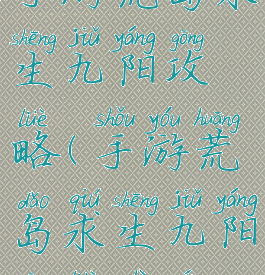 手游荒岛求
shēng jiǔ yáng gōng
生九阳攻
lüè shǒu yóu huāng
略(手游荒
dǎo qiú shēng jiǔ yáng
岛求生九阳